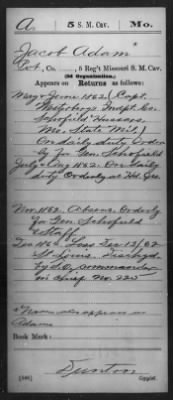 A. 5 S. M. Cav. Mo.
Jacob Adam*
Pvt., Co. , 5 Reg't Missouri S. M. Cav.
(2d Organization.)
Appears on Returns as follows:
May & June 1862 (Capt.
Indpt. Co.
Schofield Hussars,
Mo. State Mil.)
On daily duty Order-
ly for Gen. Schofield
July 1862. On daily
duty Orderly at Hd. Qrs.
Nov. 1862. Absent. Orderly
for Gen. Schofield
Staff
Dec 1862. Loss Dec 12/62
St. Louis. Dischgd.
by S.O. Commander
in Chief No. 220
*Name also appears as
Adams
Book Mark:
Dunton
(546) Copyist.